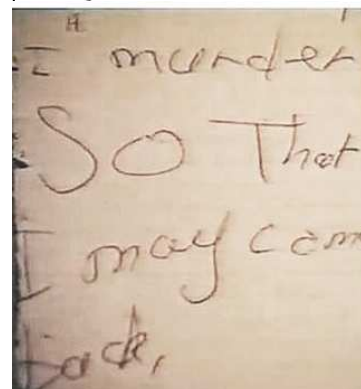 I murder
SO That
I may com
back,